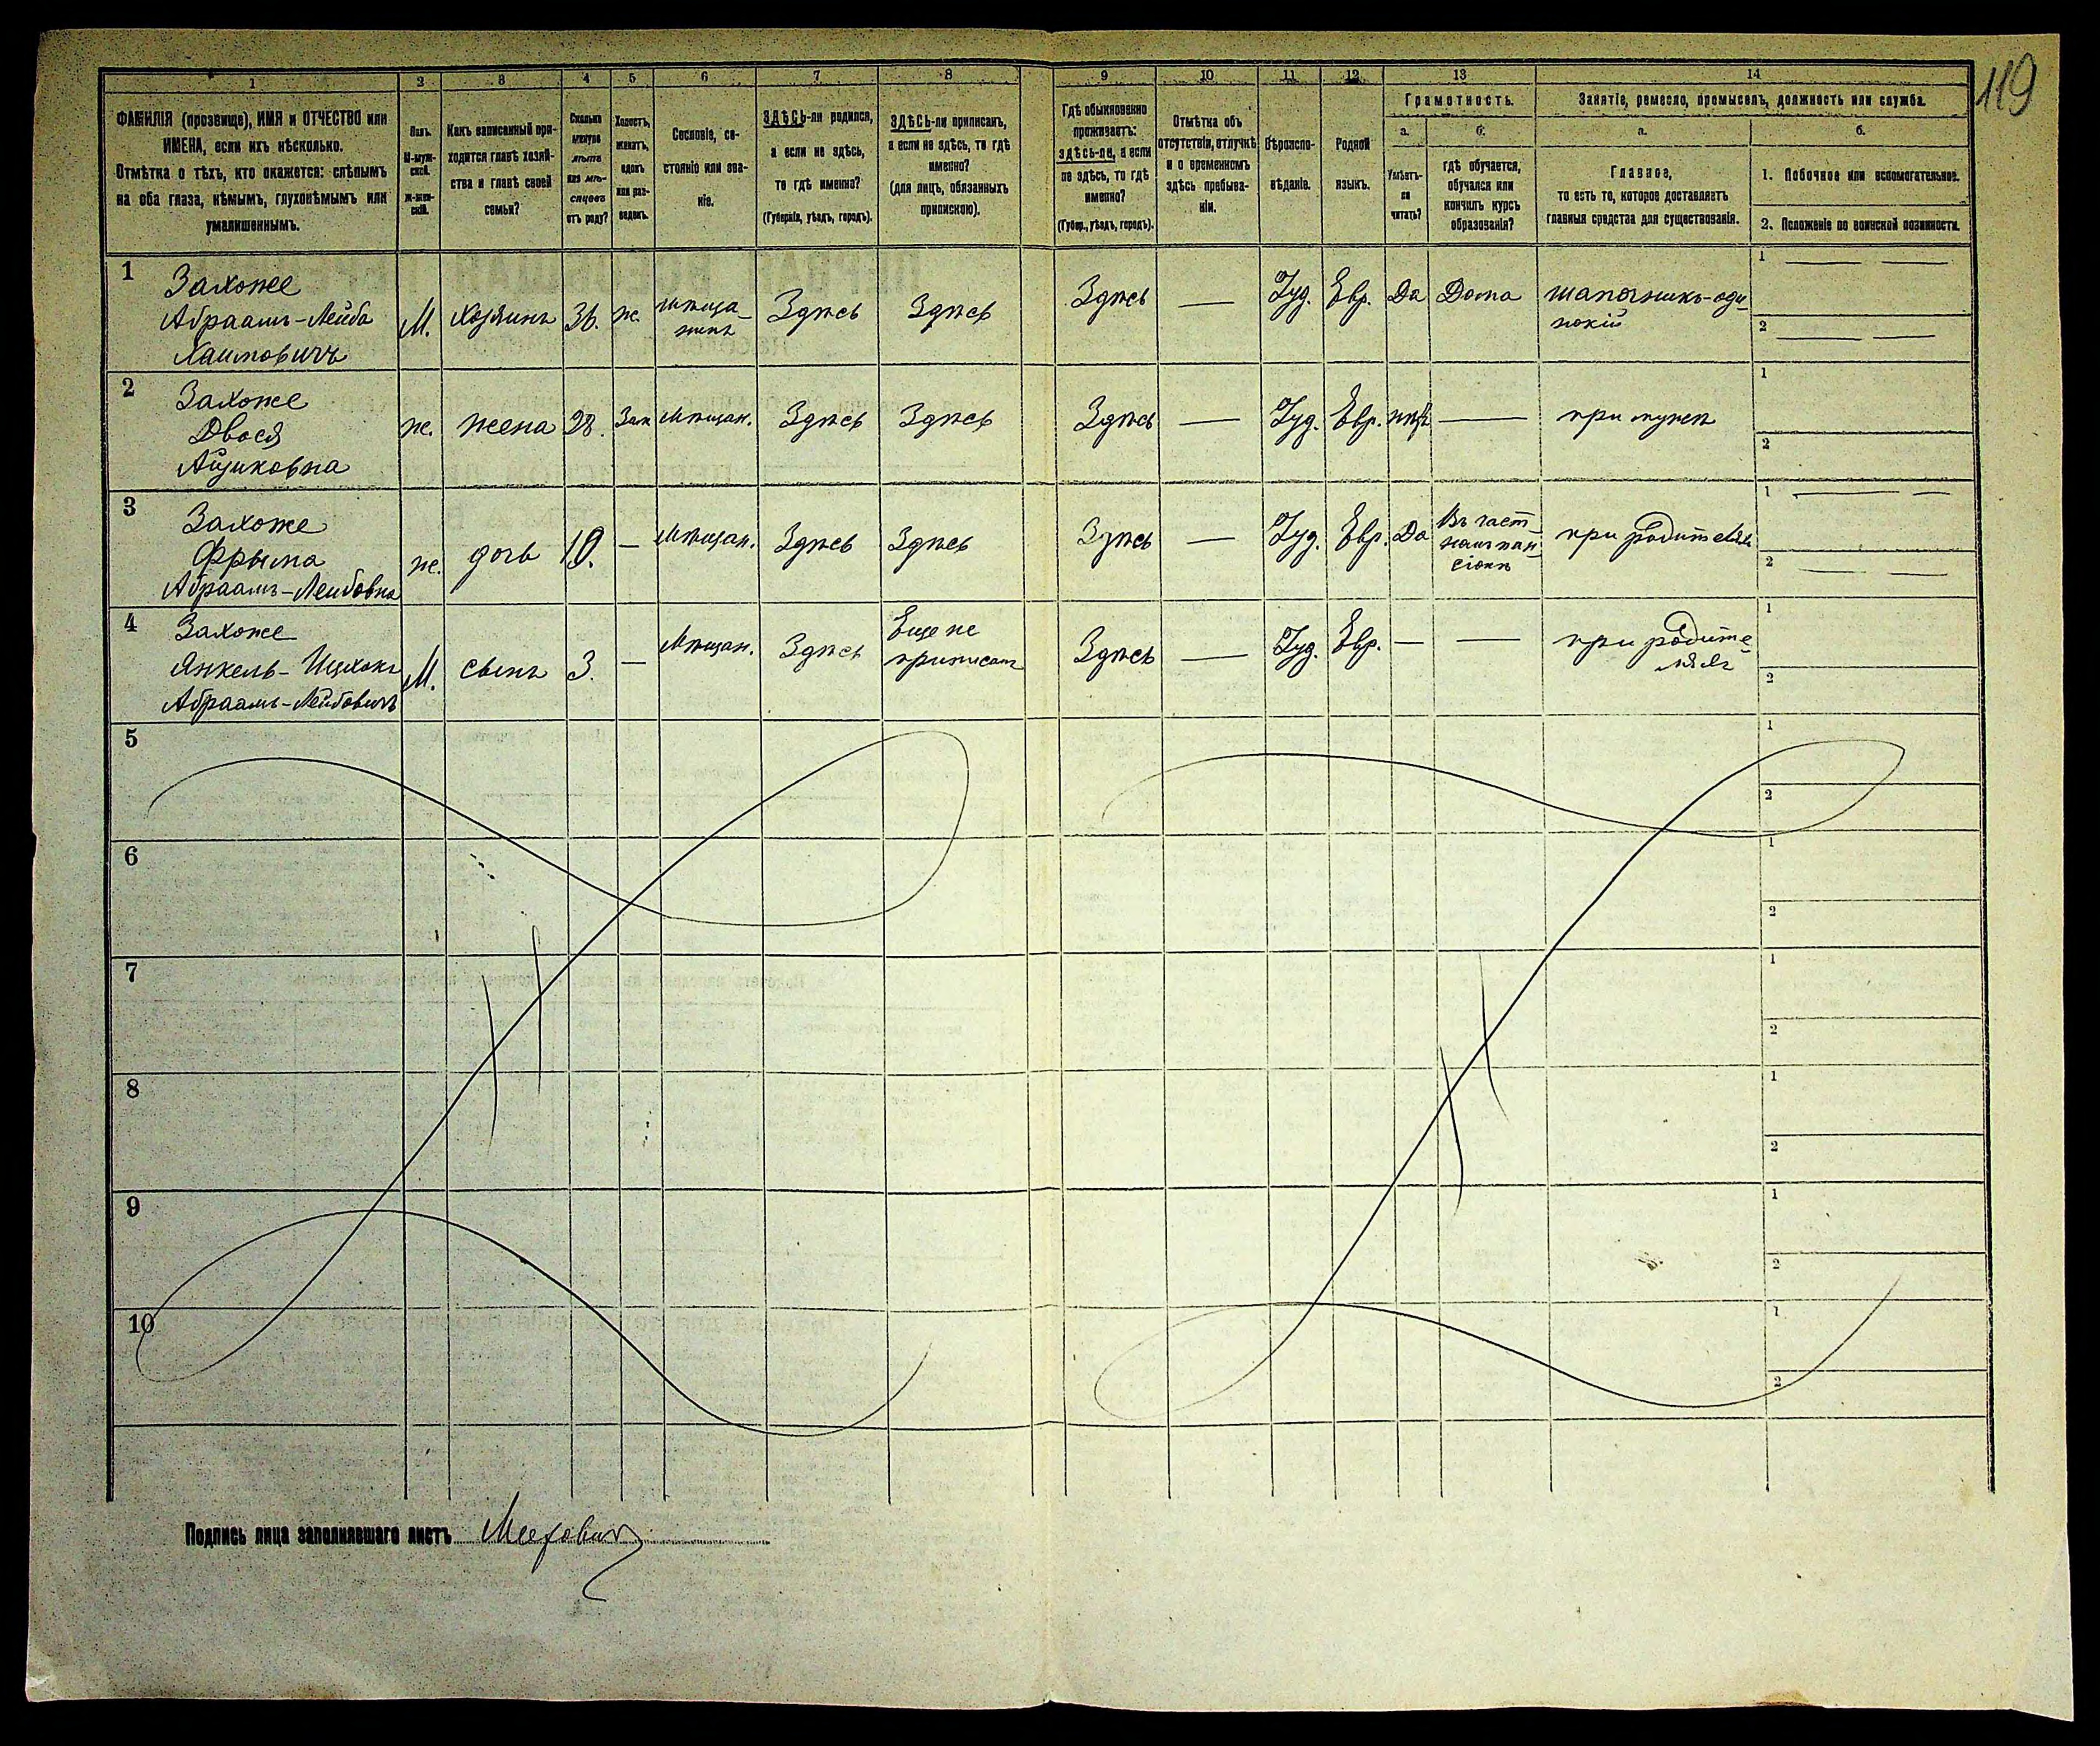 119
1 2 3 4 5 6 7 8 9 10 11 12 13 14
ФАМИЛІЯ (прозвище), ИМЯ и ОТЧЕСТВО или
ИМЕНА, если ихъ нѣсколько.
Отмѣтка о тѣхъ, кто окажется: слѣпымъ
на оба глаза, нѣмымъ, глухонѣмымъ или
умалишеннымъ.
Полъ.
М-муж-
ской.
Ж-жен-
скій.
Какъ записанный при-
ходится главѣ хозяй-
ства и главѣ своей
семьи?
Сколько
минуло
лѣтъ
или мѣ-
сяцевъ
отъ роду?
Холостъ,
женатъ,
вдовъ
или раз-
веденъ.
Сословіе, со-
стояніе или зва-
ніе.
ЗДѢСЬ-ли родился,
а если не здѣсь,
то гдѣ именно?
(Губернія, уѣздъ, городъ).
ЗДѢСЬ-ли приписанъ,
а если не здѣсь, то гдѣ
именно?
(для лицъ, обязанныхъ
припискою).
Гдѣ обыкновенно
проживаетъ:
здѣсь-ли, а если
не здѣсь, то гдѣ
именно?
(Губер., уѣздъ, городъ).
Отмѣтка объ
отсутствіи, отлучкѣ
и о временномъ
здѣсь пребыва-
ніи.
Вѣроиспо-
вѣданіе.
Родной
языкъ.
Грамотность.
а.
Умѣетъ-
ли
читать?
б.
гдѣ обучается,
обучался или
кончилъ курсъ
образованія?
Занятіе, ремесло, промыселъ, должность или служба.
а.
Главное,
то есть то, которое доставляетъ
главныя средства для существованія.
б.
1. Побочное или вспомогательное.
2. Положеніе по воинской повинности.
1
Захоже
Абраамъ-Лейба
Хаимовичъ
М.
Хозяинъ
36.
ж.
мѣща-
нинъ
Здѣсь
Здѣсь
Здѣсь
—
Іуд.
Евр.
Да
Дома
шапочникъ-оди-
нокій
1 — —
2 — —
2
Захоже
Двося
Ицковна
ж.
жена
28.
Зам
Мѣщан.
Здѣсь
Здѣсь
Здѣсь
—
Іуд.
Евр.
нѣтъ
—
при мужѣ
1
2
3
Захоже
Фрыма
Абраамъ-Лейбовна
ж.
дочь
10.
—
Мѣщан.
Здѣсь
Здѣсь
Здѣсь
—
Іуд.
Евр.
Да
Въ част-
номъ пан-
сіонѣ
при родителяхъ
1 — —
2 — —
4
Захоже
Янкель-Ицхокъ
Абраамъ-Лейбовичъ
М.
сынъ
3.
—
Мѣщан.
Здѣсь
Еще не
приписанъ
Здѣсь
—
Іуд.
Евр.
—
—
при родите-
ляхъ
1
2
5
1
2
6
1
2
7
1
2
8
1
2
9
1
2
10
1
2
Подпись лица заполнявшаго листъ